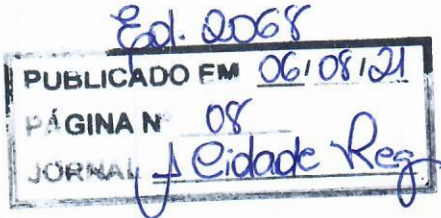 Ed. 2068
PUBLICADO EM 06/08/21
PÁGINA Nº 08
JORNAL A Cidade Reg